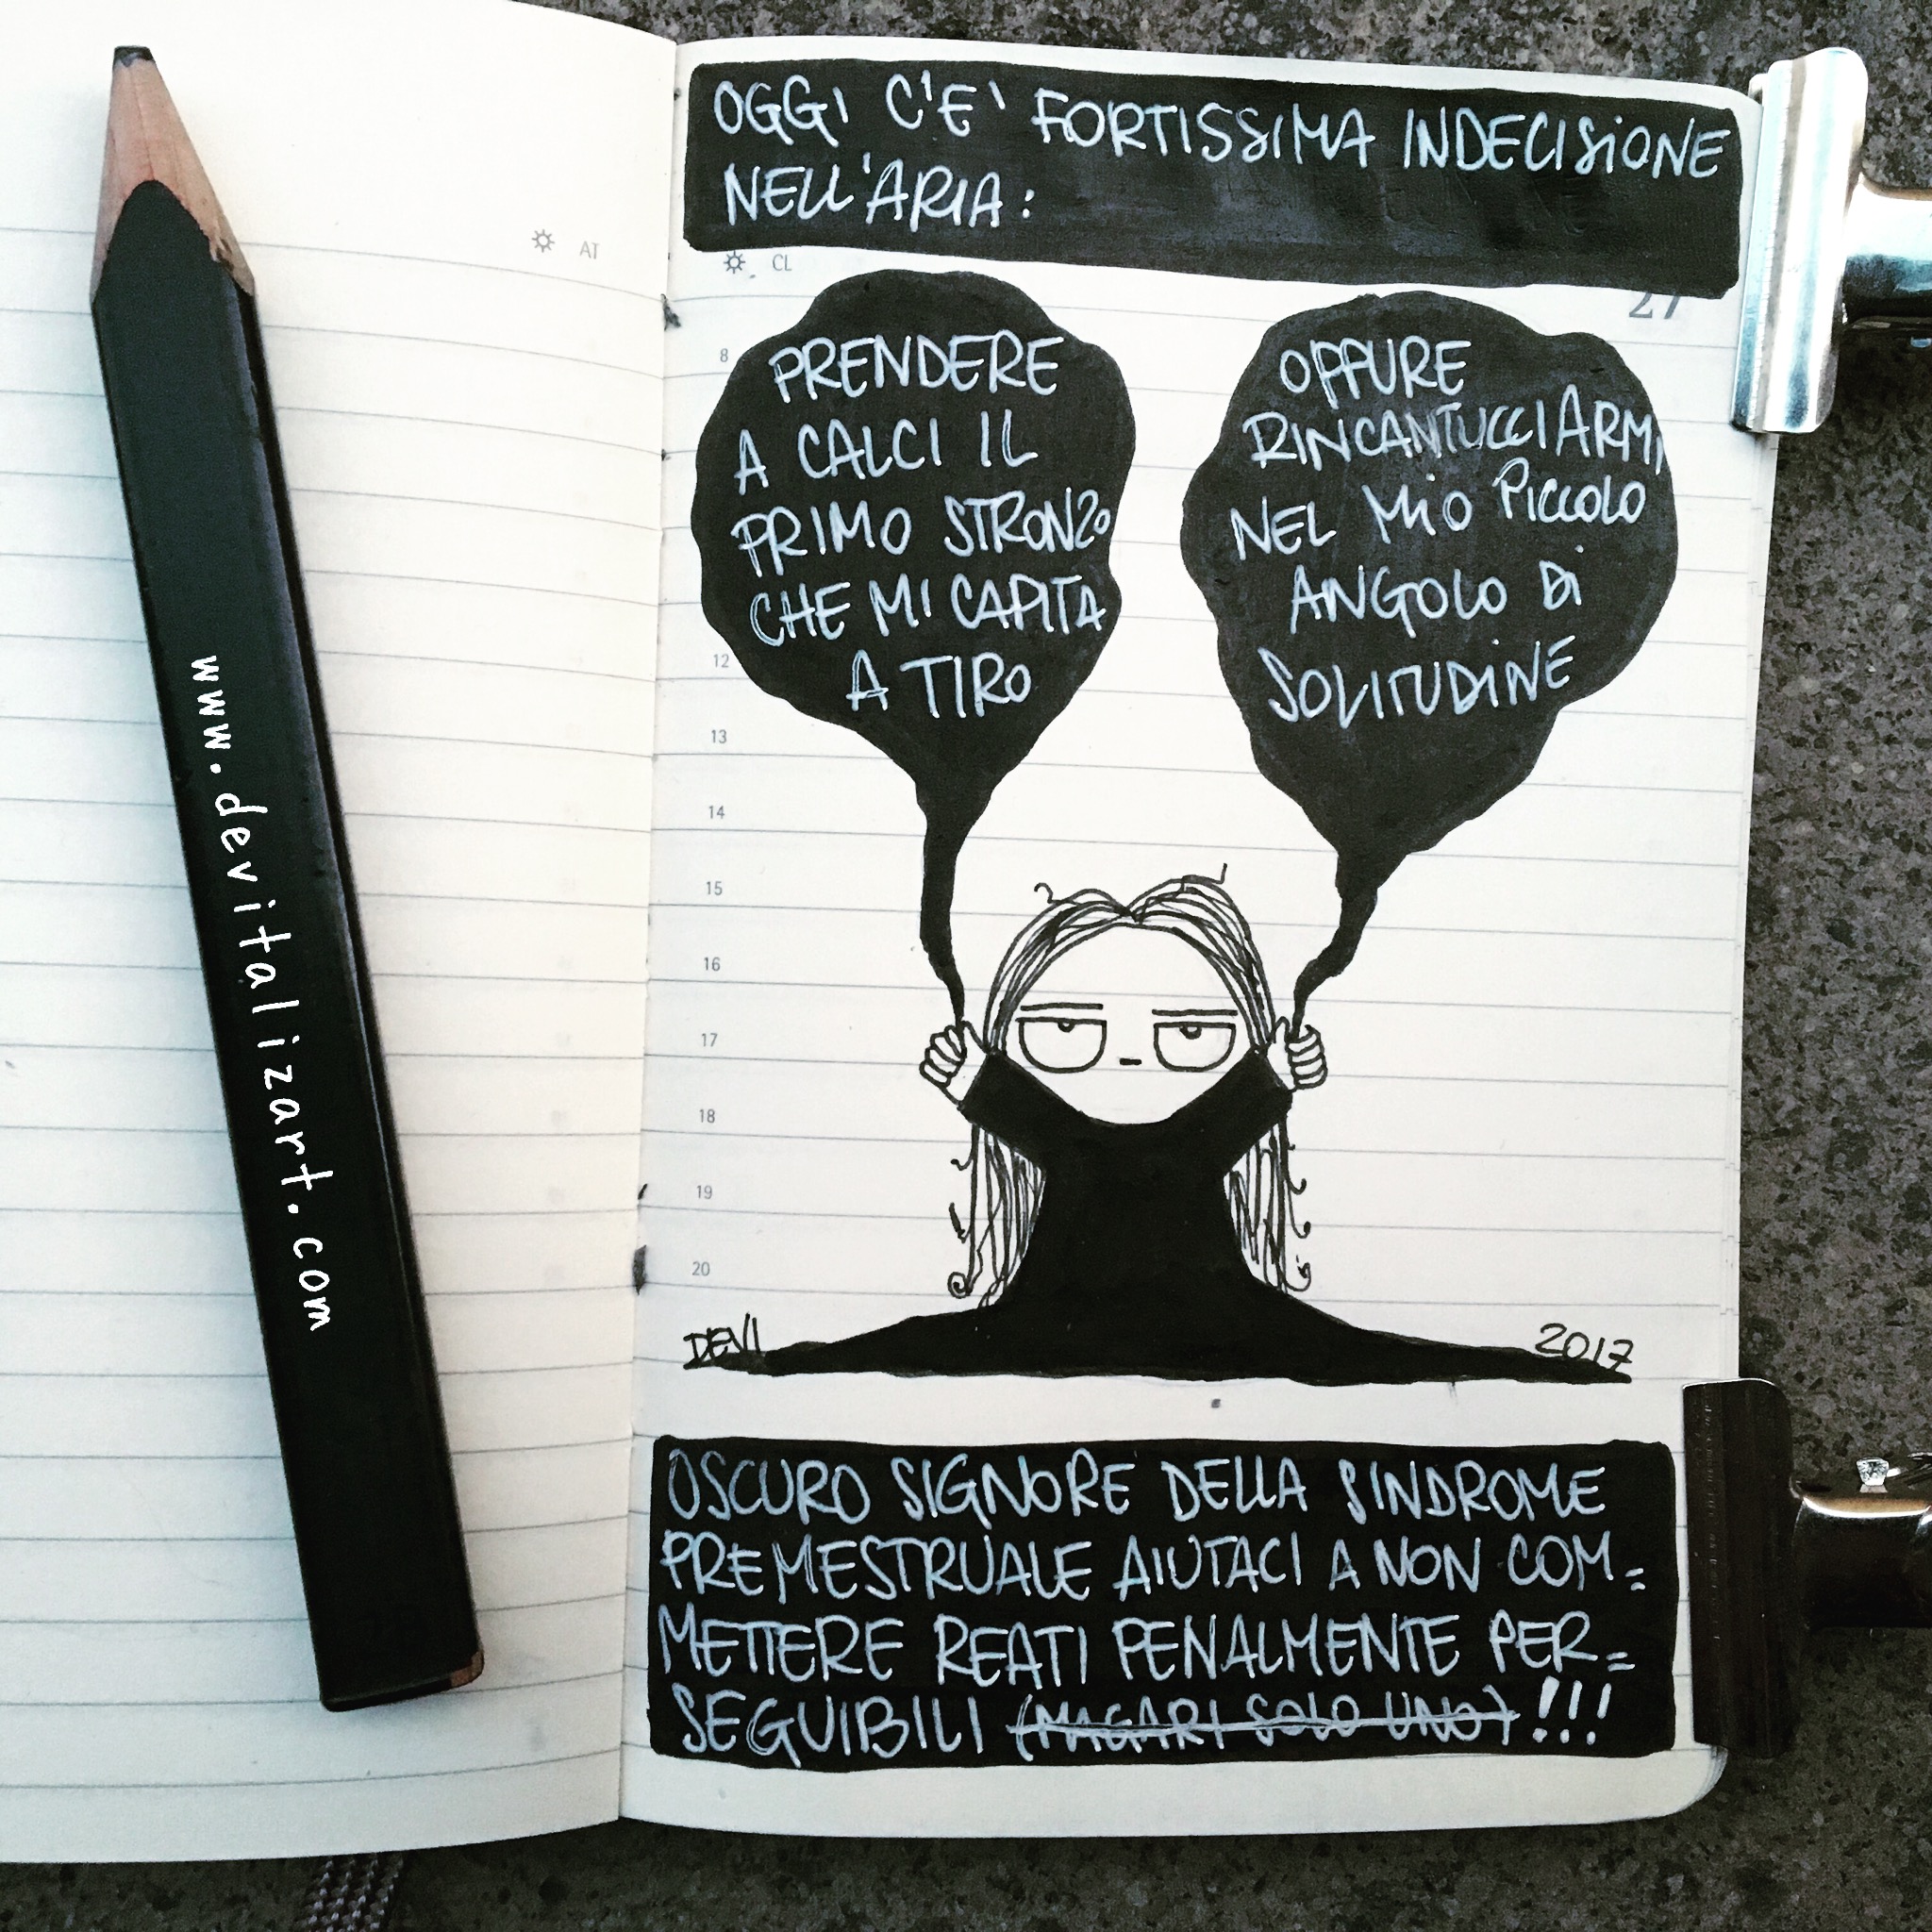 www.devitalizart.com
AT
OGGI C'E' FORTISSIMA INDECISIONE
NELL'ARIA:
CL
27
PRENDERE
A CALCI IL
PRIMO STRONZO
CHE MI CAPITA
A TIRO
OPPURE
RINCANTUCCIARMI
NEL MIO PICCOLO
ANGOLO DI
SOLITUDINE
8
12
13
14
15
16
17
18
19
20
DEVI
2017
OSCURO SIGNORE DELLA SINDROME
PREMESTRUALE AIUTACI A NON COM=
METTERE REATI PENALMENTE PER=
SEGUIBILI (MAGARI SOLO UNO) !!!